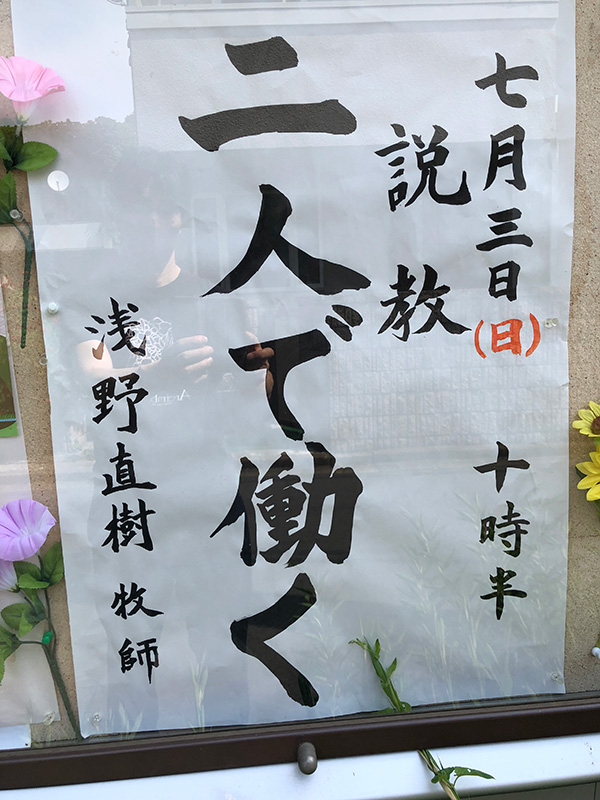 七月三日(日) 十時半
説教
二人で働く
浅野直樹 牧師